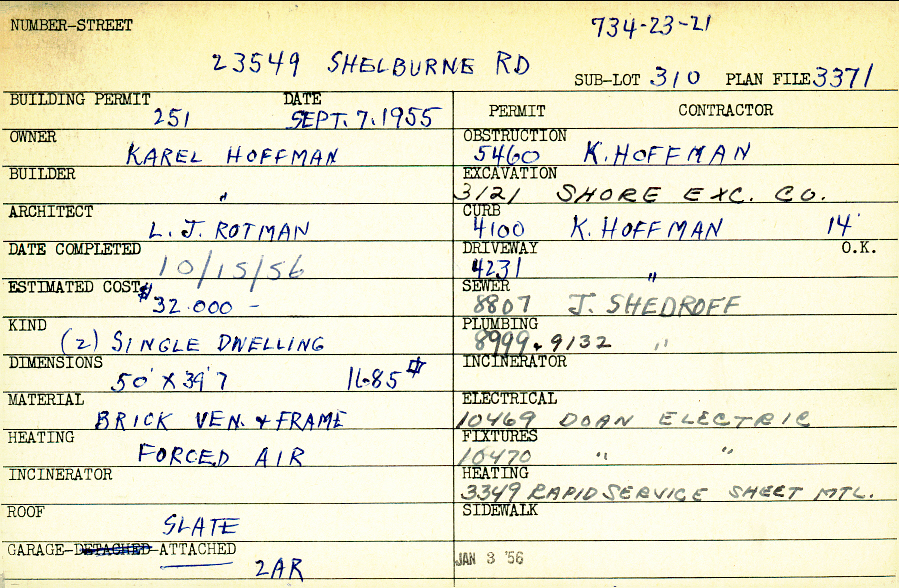 NUMBER-STREET 734-23-21
23549 SHELBURNE RD
SUB-LOT 310 PLAN FILE 3371
BUILDING PERMIT DATE
251 SEPT. 7. 1955
OWNER
KAREL HOFFMAN
BUILDER
"
ARCHITECT
L. J. ROTMAN
DATE COMPLETED
10/15/56
ESTIMATED COST
$32.000 -
KIND
(2) SINGLE DWELLING
DIMENSIONS
50' X 39'7 1685 #
MATERIAL
BRICK VEN. & FRAME
HEATING
FORCED AIR
INCINERATOR
ROOF
SLATE
GARAGE-DETACHED-ATTACHED
2AR
PERMIT CONTRACTOR
OBSTRUCTION
5460 K. HOFFMAN
EXCAVATION
3121 SHORE EXC. CO.
CURB
4100 K. HOFFMAN 14'
DRIVEWAY O.K.
4231 "
SEWER
8807 J. SHEDROFF
PLUMBING
8999 & 9132 "
INCINERATOR
ELECTRICAL
10469 DOAN ELECTRIC
FIXTURES
10470 " "
HEATING
3349 RAPID SERVICE SHEET MTL.
SIDEWALK
JAN 3 '56